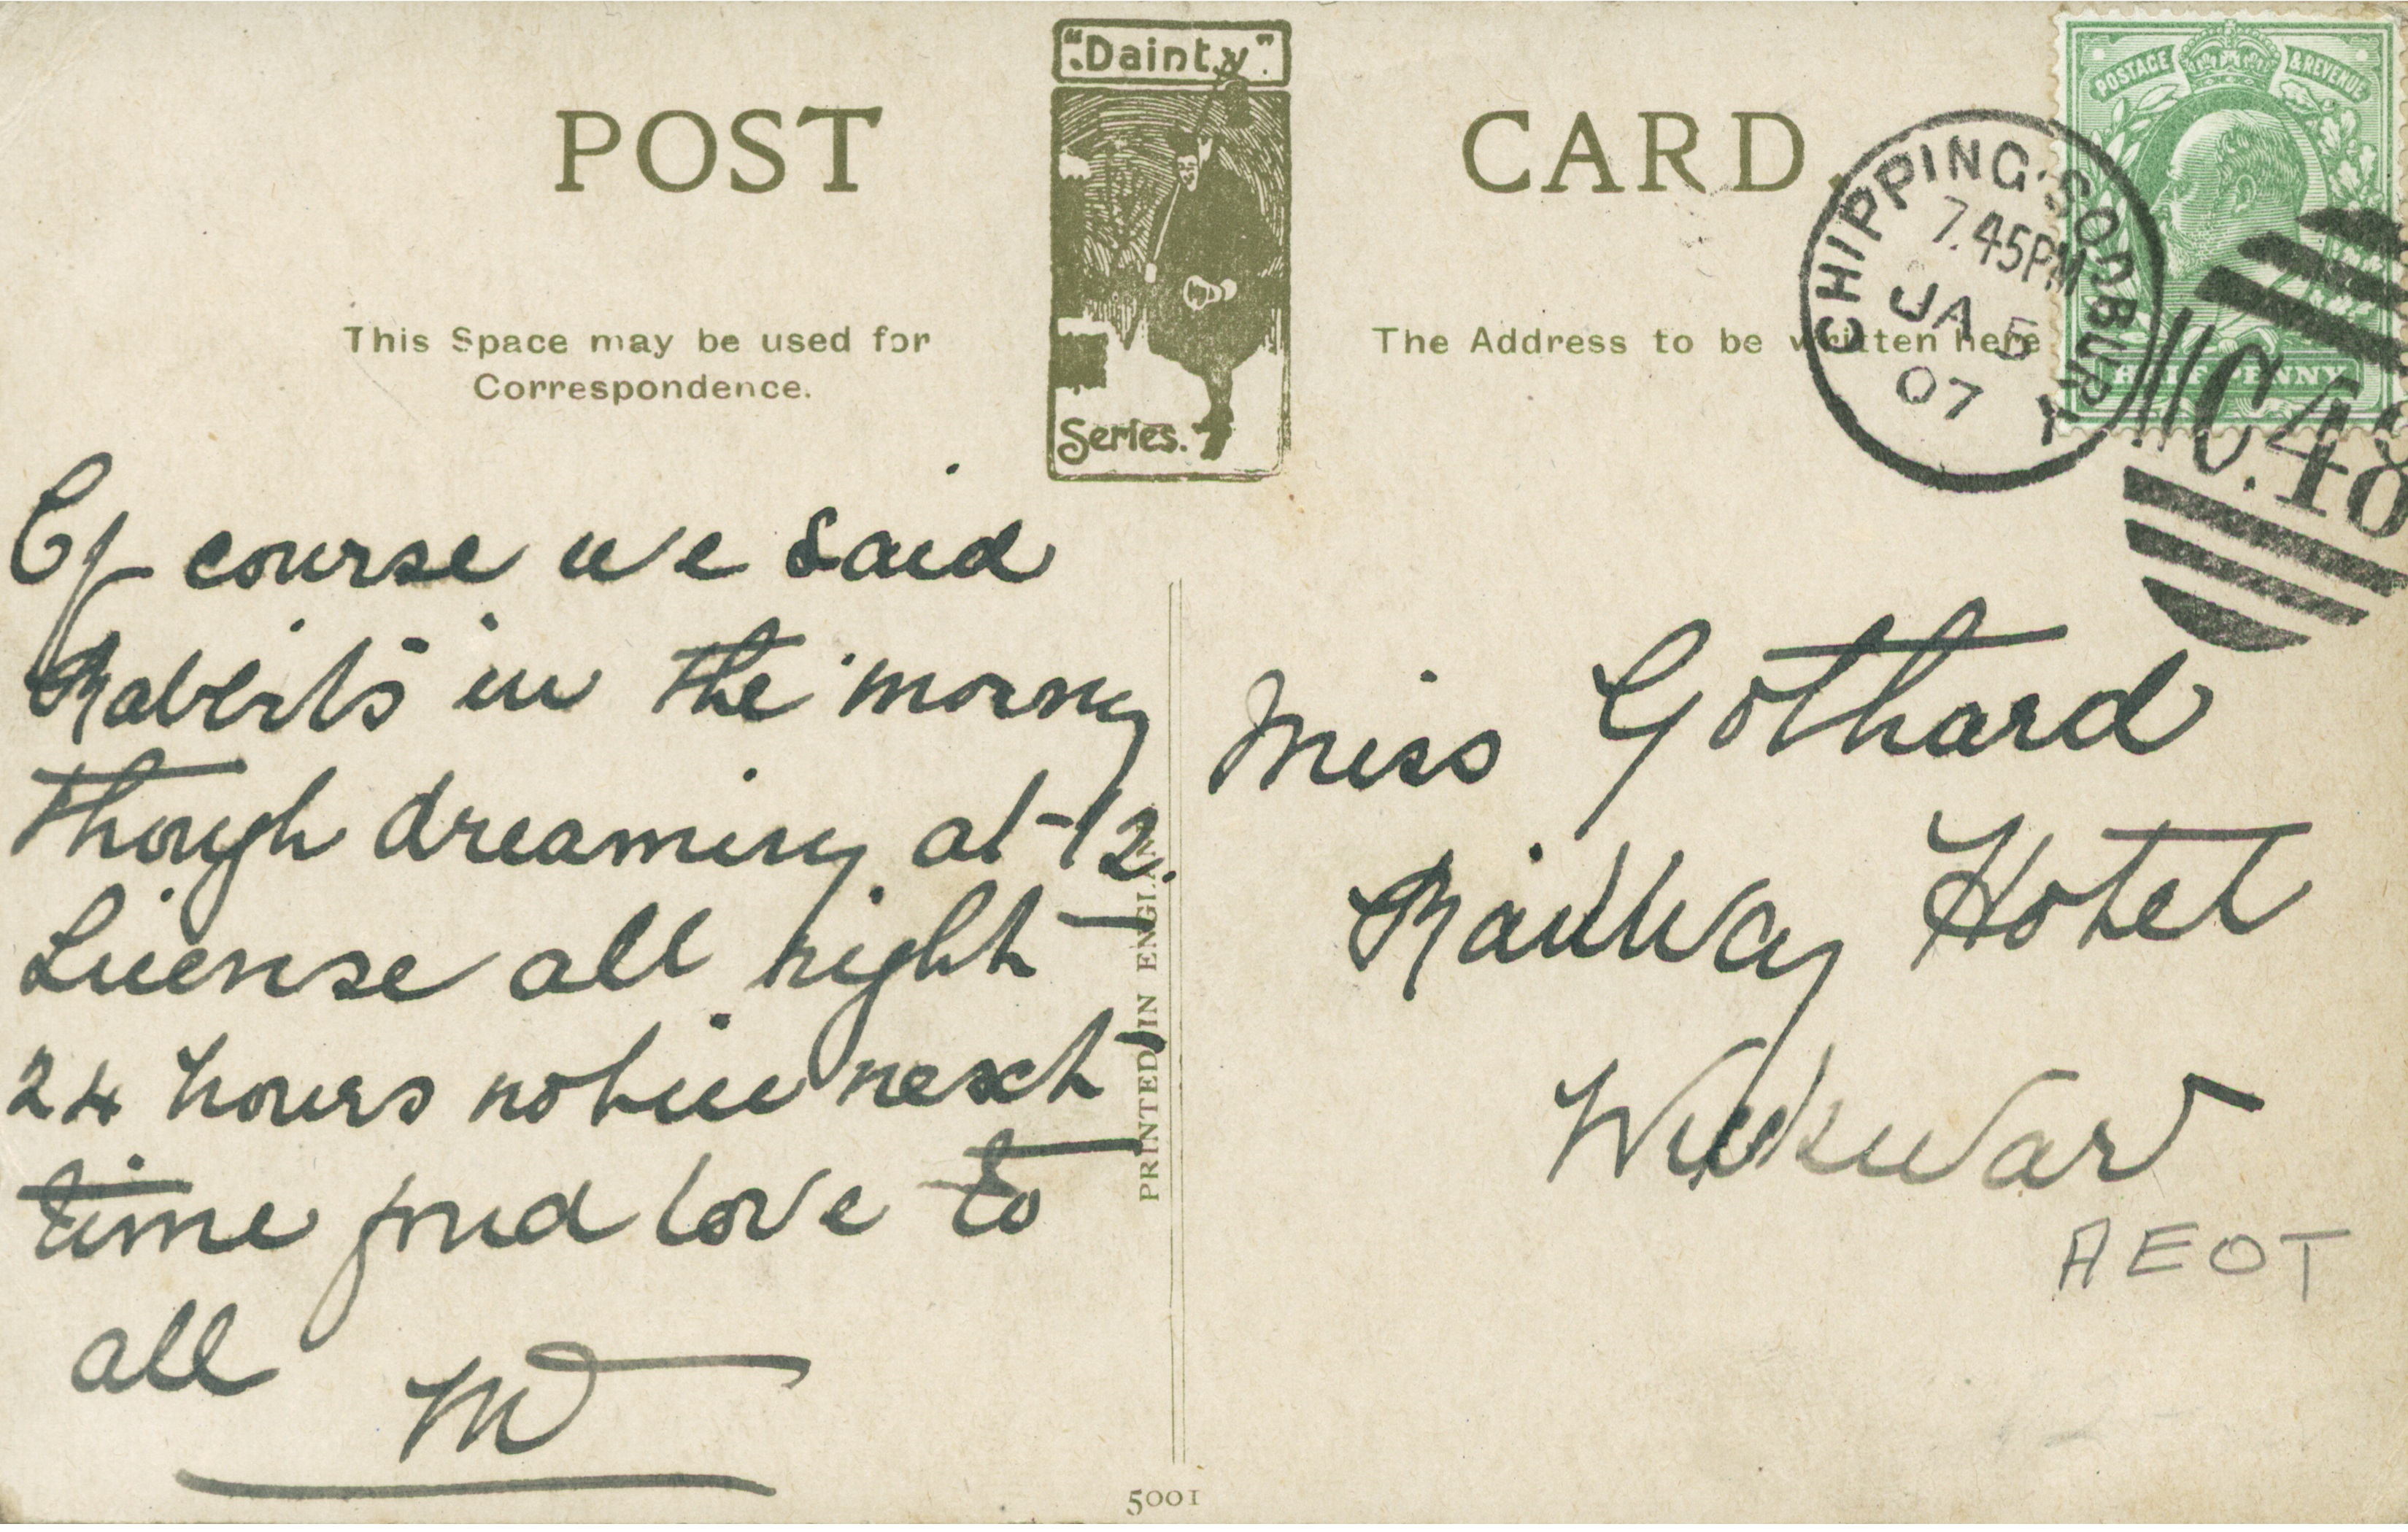 "Dainty"
POST CARD.
Series.
This Space may be used for
Correspondence.
The Address to be written here
POSTAGE & REVENUE
HALFPENNY
CHIPPING-SODBURY
7.45PM
JA 5
07
C.48
Of course we said
Roberts in the morning
though dreaming at 12.
License all right
24 hours notice next
time fond love to
all M
Miss Gothard
Railway Hotel
Wickwar
AEOT
PRINTED IN ENGLAND
5001